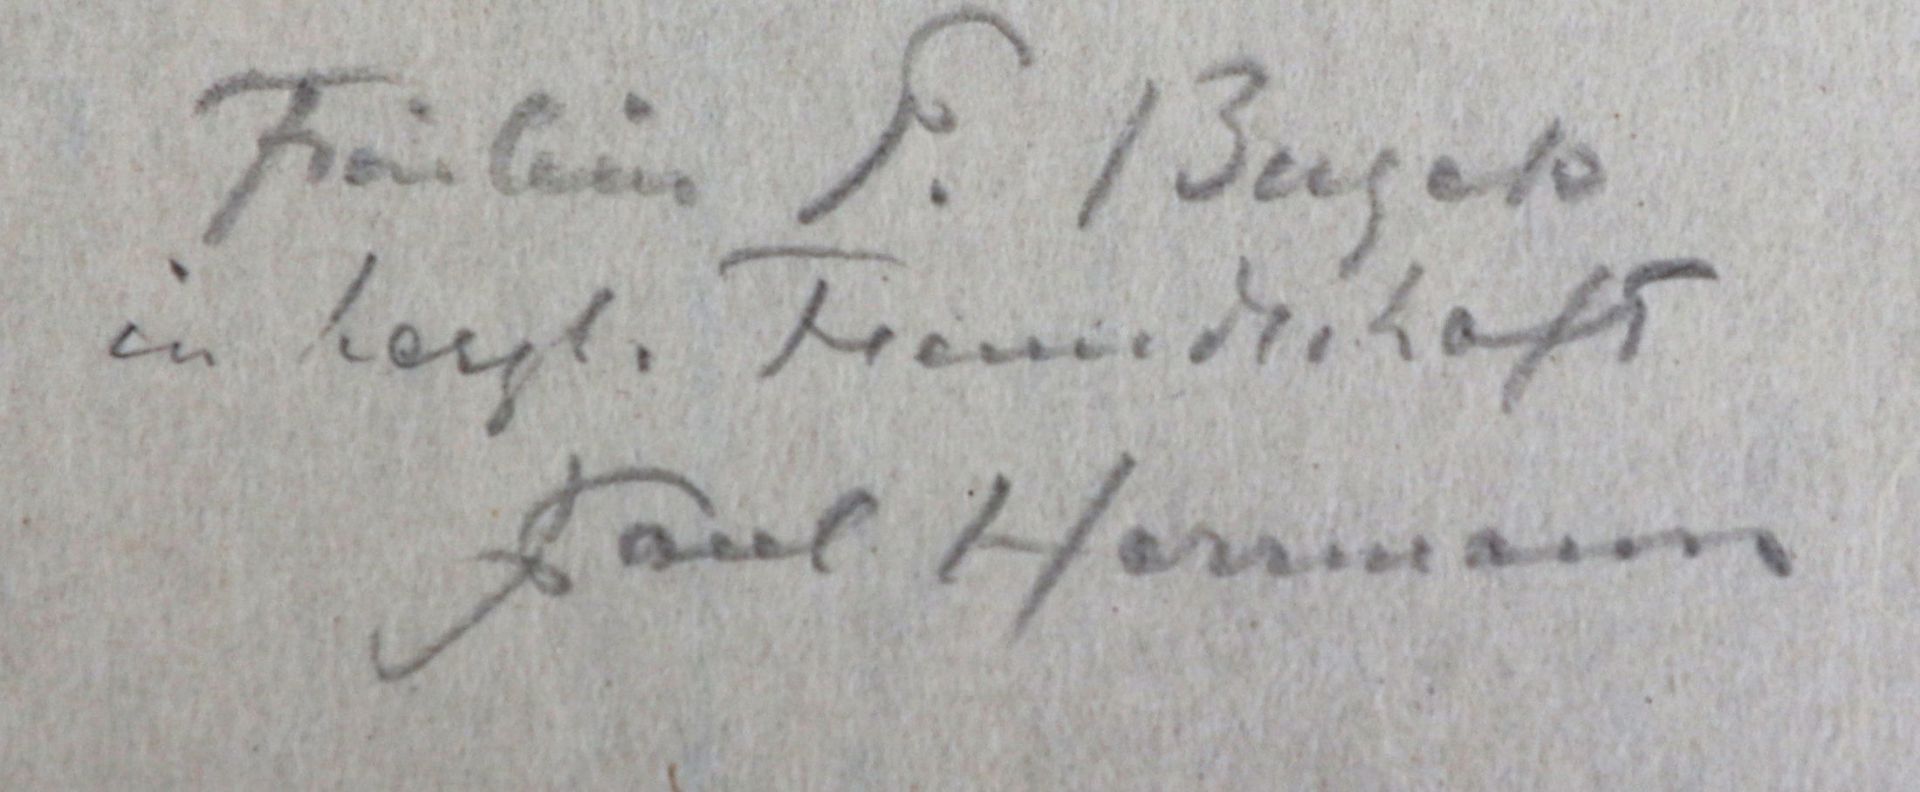 Fräulein
in herzl. Freundschaft
Paul Herrmann